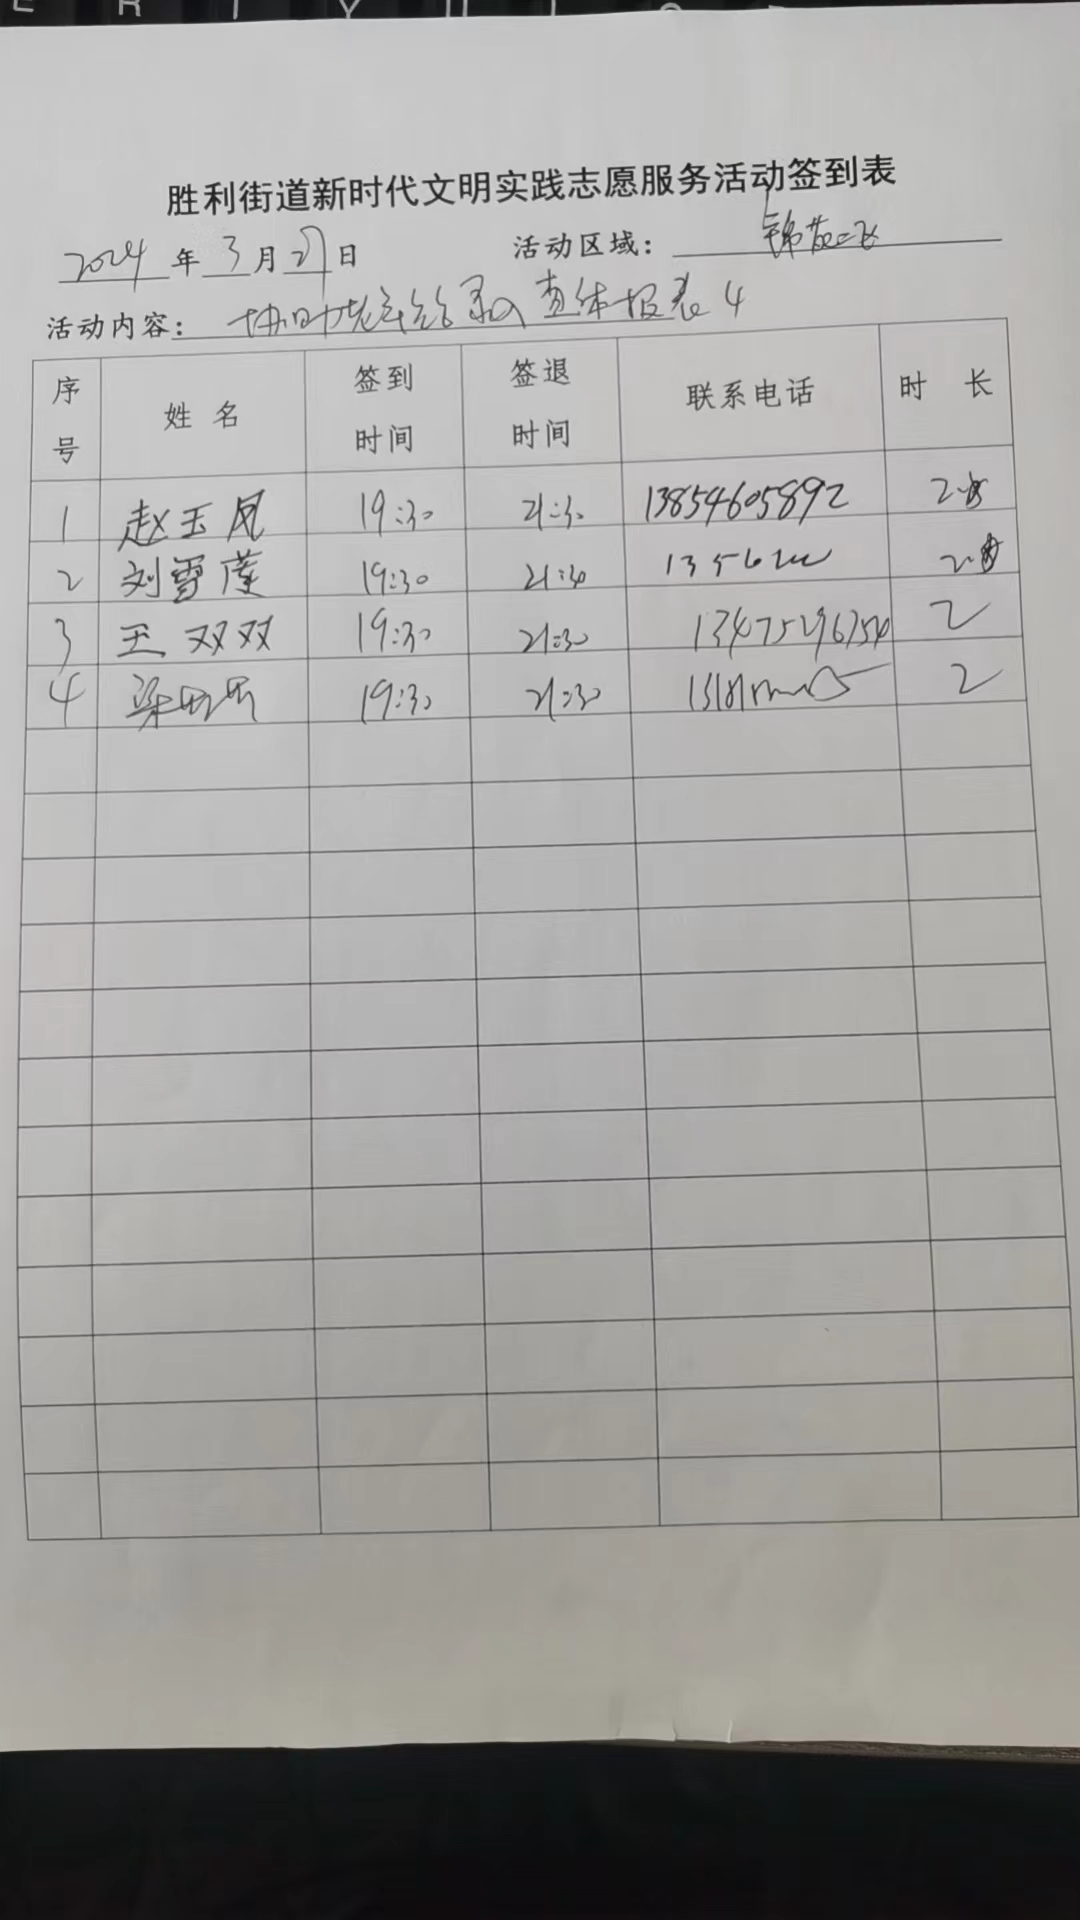 胜利街道新时代文明实践志愿服务活动签到表
2024 年 3 月 27 日 活动区域: 锦苑二区
活动内容: 查体报表 4
序号 姓 名 签到时间 签退时间 联系电话 时 长
1 赵玉凤 19:30 21:30 13854605892 2
2 刘雪莲 19:30 21:30 2
3 王双双 19:30 21:30 2
4 梁 19:30 21:30 2